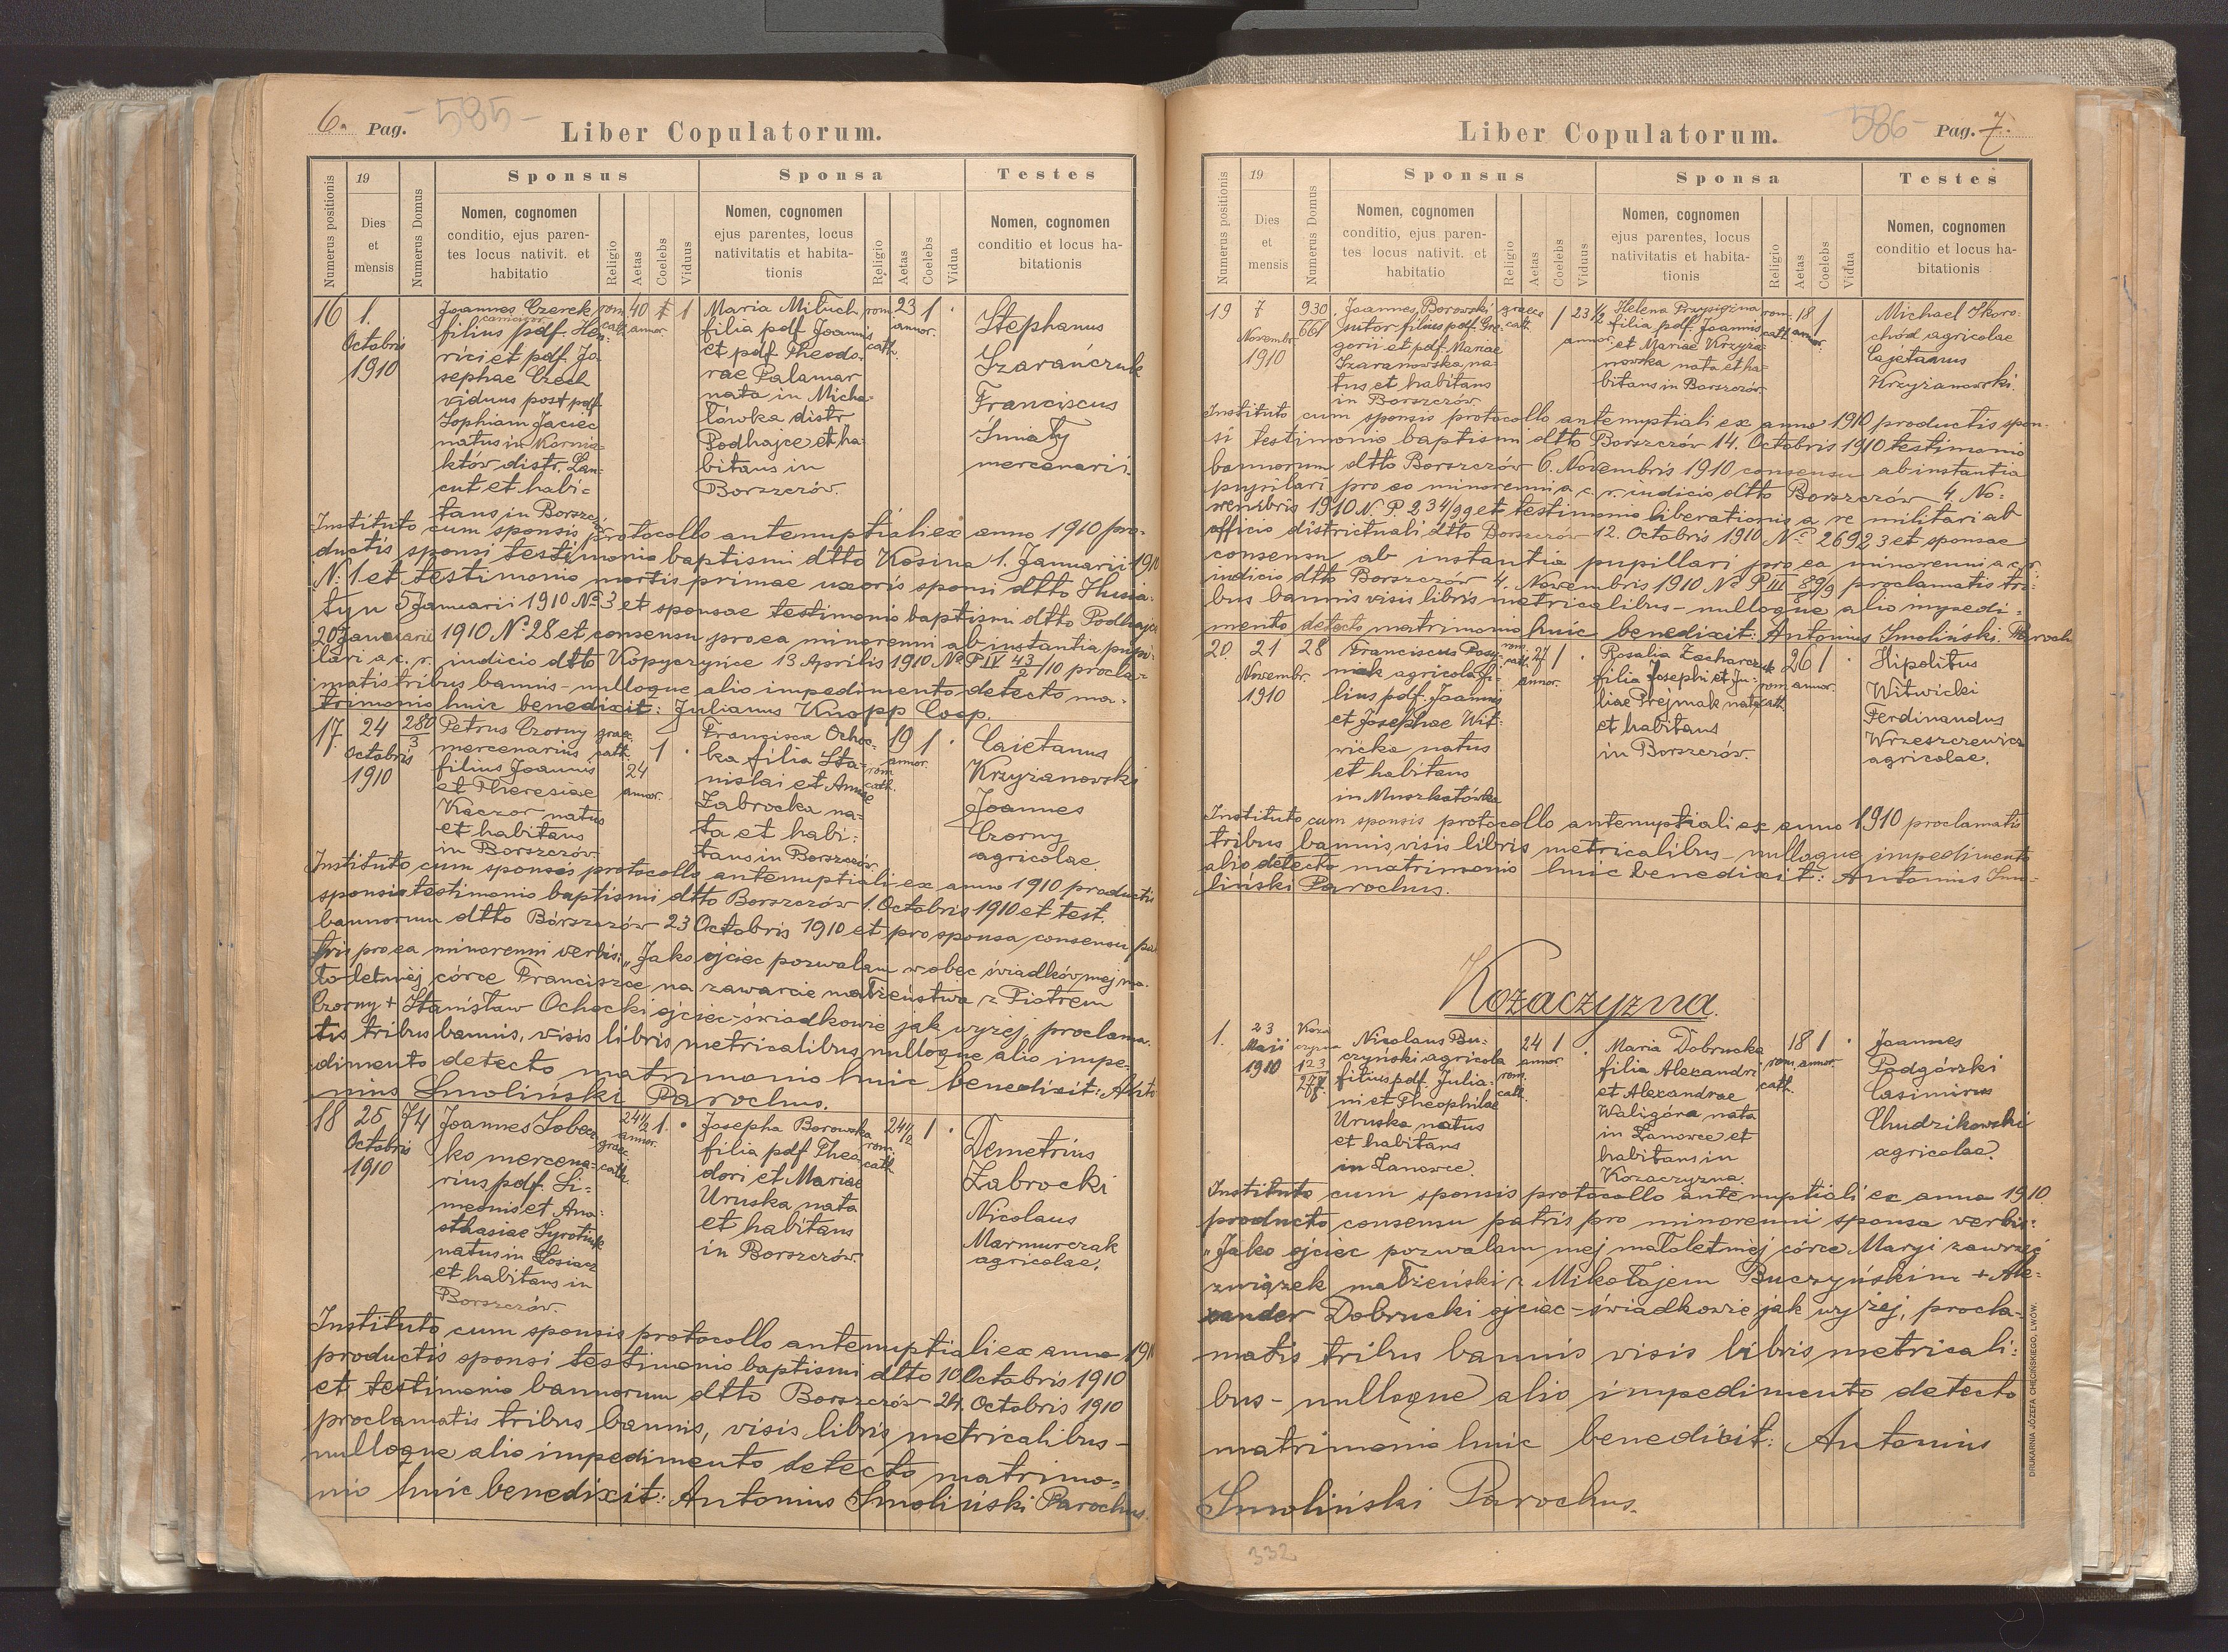 6. Pag. -585-
Liber Copulatorum.
Numerus positionis
19
Dies
et
mensis
Numerus Domus
Sponsus
Nomen, cognomen
conditio, ejus paren-
tes locus nativit. et
habitatio
Religio
Aetas
Coelebs
Viduus
Sponsa
Nomen, cognomen
ejus parentes, locus
nativitatis et habita-
tionis
Religio
Aetas
Coelebs
Vidua
Testes
Nomen, cognomen
conditio et locus ha-
bitationis
16
1.
Octobris
1910
Joannes Czerek
filius pdf. Hen-
rici et pdf. Jo
sephae Czech
viduus post pdf
Sophiam Jaciec
natus in Kornia-
któw distr. Lan-
cut et habi-
tans in Borszczów
rom. cath.
40 annor.
1
Maria Mituch
filia pdf Joannis
et pdf Theodo-
rae Palamar
nata in Micha-
łówka distr
Podhajce et ha-
bitans in
Borszczów.
rom. cath.
23 annor.
1
Stephanus
Szarańczuk
Franciscus
Śmiały
mercenarii.
Instituto cum sponsis protocollo antenuptiali ex anno 1910 pro-
ductis sponsi testimonio baptismi dtto Kosina 1. Januarii 1910
N: 1 et testimonio mortis primae uxoris sponsi dtto Husia-
tyn 5 Januarii 1910 No 3 et sponsae testimonio baptismi dtto Podhajce
20 Januarii 1910 N: 28 et consensu pro ea minorenni ab instantia pupi-
lari a c. r. iudicio dtto Kopyczynce 13 Aprilis 1910 No P IV 43/2/10 procla-
matis tribus bannis - nulloque alio impedimento detecto ma-
trimonio huic benedixit: Julianus Knopp Coop.
17
24
Octobris
1910
280
3
Petrus Czorny
mercenarius
filius Joannis
et Theresiae
Kaczor natus
et habitans
in Borszczów.
graec. cath.
24 annor.
1
Francisca Ochoc-
ka filia Sta-
nislai et Annae
Zabrocka na-
ta et habi-
tans in Borszczów.
rom. cath.
19 annor.
1
Caietanus
Krzyżanowski
Joannes
Czorny
agricolae
Instituto cum sponsis protocollo antenuptiali ex anno 1910 productis
sponsi testimonio baptismi dtto Borszczów 1. Octobris 1910 et test.
bannorum dtto Borszczów 23 Octobris 1910 et pro sponsa consensu pa
tris pro ea minorenni verbis: „Jako ojciec pozwalam wobec świadków mej ma-
łoletniej córce Franciszce na zawarcie małżeństwa z Piotrem
Czorny + Stanisław Ochocki ojciec - świadkowie jak wyżej, proclama-
tis tribus bannis, visis libris metricalibus nulloque alio impe-
dimento detecto matrimonio huic benedixit: Anto
nius Smoliński Parochus.
18
25
Octobris
1910
74
Joannes Sobcz
ko mercena-
rius pdf. Si-
meonis et Ana-
sthasiae Syrotiuk
natus in Łosiacz
et habitans in
Borszczów.
24 1/2 annor.
graec. cath.
1.
Josepha Borowska
filia pdf Theo
dori et Mariae
Uruska nata
et habitans
in Borszczów.
rom. cath.
24 1/2
1
Demetrius
Zabrocki
Nicolaus
Marmurczak
agricolae.
Instituto cum sponsis protocollo antenuptiali ex anno 1910
productis sponsi testimonio baptismi dtto 10 Octobris 1910
et testimonio bannorum dtto Borszczów 24. Octobris 1910
proclamatis tribus bannis, visis libris metricalibus -
nulloque alio impedimento detecto matrimo-
nio huic benedixit: Antonius Smoliński Parochus.
Liber Copulatorum.
586- Pag. 7.
Numerus positionis
19
Dies
et
mensis
Numerus Domus
Sponsus
Nomen, cognomen
conditio, ejus paren-
tes locus nativit. et
habitatio
Religio
Aetas
Coelebs
Viduus
Sponsa
Nomen, cognomen
ejus parentes, locus
nativitatis et habita-
tionis
Religio
Aetas
Coelebs
Vidua
Testes
Nomen, cognomen
conditio et locus ha-
bitationis
19
7
Novembr.
1910
930
661
Joannes Borowski
sutor filius pdf. Gre-
gorii et pdf. Mariae
Szaranowska na-
tus et habitans
in Borszczów
graeco cath.
1
23 1/2 annor.
Helena Przysiężna
filia pdf. Joannis
et Mariae Krzyża-
nowska nata et ha-
bitans in Borszczów
rom. cath.
18 annor.
1
Michael Skoro-
chód agricolae
Cajetanus
Krzyżanowski.
Instituto cum sponsis protocollo antenuptiali ex anno 1910 productis spon-
si testimonio baptismi dtto Borszczów 14. Octobris 1910 testimonio
bannorum dtto Borszczów 6. Novembris 1910 consensu ab instantia
pupilari pro eo minorenni a c. r. iudicio dtto Borszczów 4. No-
vembris 1910 N. P 234/99 et testimonio liberationis a re militari ab
officio districtuali dtto Borszczów 12. Octobris 1910 No 26923 et sponsae
consensu ab instantia pupillari pro ea minorenni a c. r.
iudicio dtto Borszczów 4. Novembris 1910 No P III 89/9 proclamatis tri-
bus bannis visis libris metricalibus - nulloque alio impedi-
mento detecto matrimonio huic benedixit: Antonius Smoliński Paroch
20.
21
Novembr.
1910
28
Franciscus Posy-
niak agricola fi-
lius pdf. Joannis
et Josephae Wit-
wicka natus
et habitans
in Muszkatówka
rom. cath.
27 annor.
1
Rosalia Zacharczuk
filia Josephi et Ju-
liae Prejmak nata
et habitans
in Borszczów.
rom. cath.
26 annor.
1
Hipolitus
Witwicki
Ferdinandus
Wrzeszczewicz
agricolae.
Instituto cum sponsis protocollo antenuptiali ex anno 1910 proclamatis
tribus bannis, visis libris metricalibus - nulloque impedimento
alio detecto matrimonio huic benedixit: Antonius Smo-
liński Parochus.
Kozaczyzna.
1.
23
Maii
1910
Koza
czyzna
123
277
Nicolaus Bu-
czyński agricola
filius pdf. Julia-
ni et Theophilae
Uruska natus
et habitans
in Łanowce.
rom. cath.
24 annor.
1
Maria Dobrucka
filia Alexandri
et Alexandrae
Waligóra nata
in Łanowce et
habitans in
Kozaczyzna.
rom. cath.
18 annor.
1
Joannes
Podgórski
Casimirus
Chudzikowski
agricolae.
Instituto cum sponsis protocollo antenuptiali ex anno 1910
producto consensu patris pro minorenni sponsa verbis:
„Jako ojciec pozwalam mej małoletniej córce Maryi zawrzeć
związek małżeński z Mikołajem Buczyńskim + Ale-
xander Dobrucki ojciec - świadkowie jak wyżej, procla-
matis tribus bannis visis libris metricali-
bus - nulloque alio impedimento detecto
matrimonio huic benedixit: Antonius
Smoliński Parochus.
DRUKARNIA JÓZEFA CHĘCIŃSKIEGO, LWÓW.
332